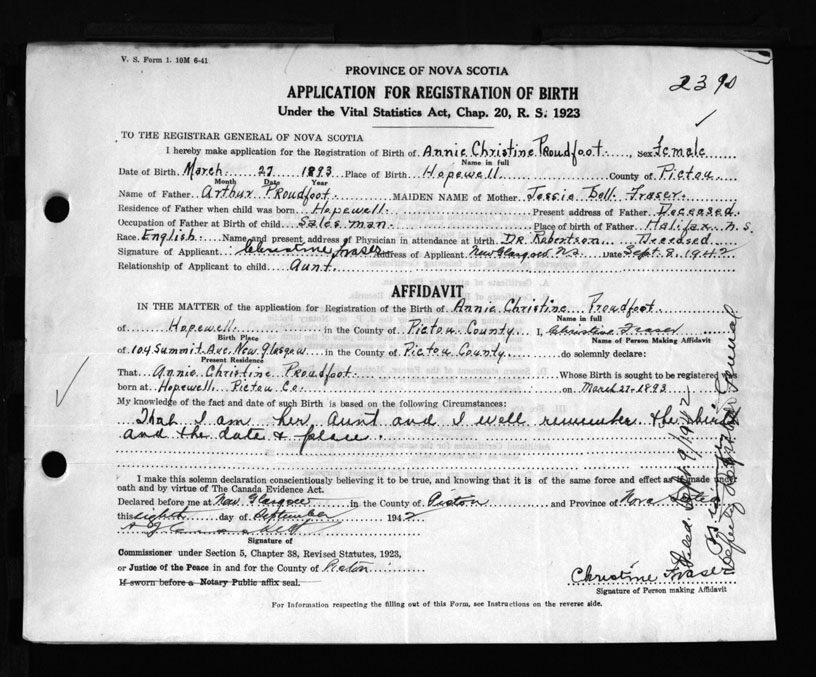 V. S. Form 1. 10M 6-41
PROVINCE OF NOVA SCOTIA
APPLICATION FOR REGISTRATION OF BIRTH
Under the Vital Statistics Act, Chap. 20, R. S. 1923
23 90
TO THE REGISTRAR GENERAL OF NOVA SCOTIA
I hereby make application for the Registration of Birth of Annie Christine Proudfoot, Sex Female
Name in full
Date of Birth March 27 1893 Place of Birth Hopewell County of Pictou
Month Date Year
Name of Father Arthur Proudfoot MAIDEN NAME of Mother Jessie Bell Fraser
Residence of Father when child was born Hopewell Present address of Father Deceased
Occupation of Father at Birth of child Sales man Place of birth of Father Halifax N.S.
Race English Name and present address of Physician in attendance at birth DR. Robertson Deceased
Signature of Applicant Christine Fraser Address of Applicant New Glasgow N.S. Date Sept. 8, 1942
Relationship of Applicant to child Aunt
AFFIDAVIT
IN THE MATTER of the application for Registration of the Birth of Annie Christine Proudfoot
Name in full
of Hopewell in the County of Pictou County I, Christine Fraser
Birth Place Name of Person Making Affidavit
of 104 Summit Ave, New Glasgow in the County of Pictou County do solemnly declare:
Present Residence
That Annie Christine Proudfoot Whose Birth is sought to be registered
born at Hopewell Pictou Co. on March 27-1893
My knowledge of the fact and date of such Birth is based on the following Circumstances:
That I am her Aunt and I well remember the birth
and the date & place.
I make this solemn declaration conscientiously believing it to be true, and knowing that it is of the same force and effect as if made under
oath and by virtue of The Canada Evidence Act.
Declared before me at New Glasgow in the County of Picton and Province of Nova Scotia
this eighth day of September 1942
Signature of
Commissioner under Section 5, Chapter 38, Revised Statutes, 1923,
or Justice of the Peace in and for the County of Picton
If sworn before a Notary Public affix seal.
Christine Fraser
Signature of Person making Affidavit
For Information respecting the filling out of this Form, see Instructions on the reverse side.
Filed Sept 9/1942
Deputy Registrar General